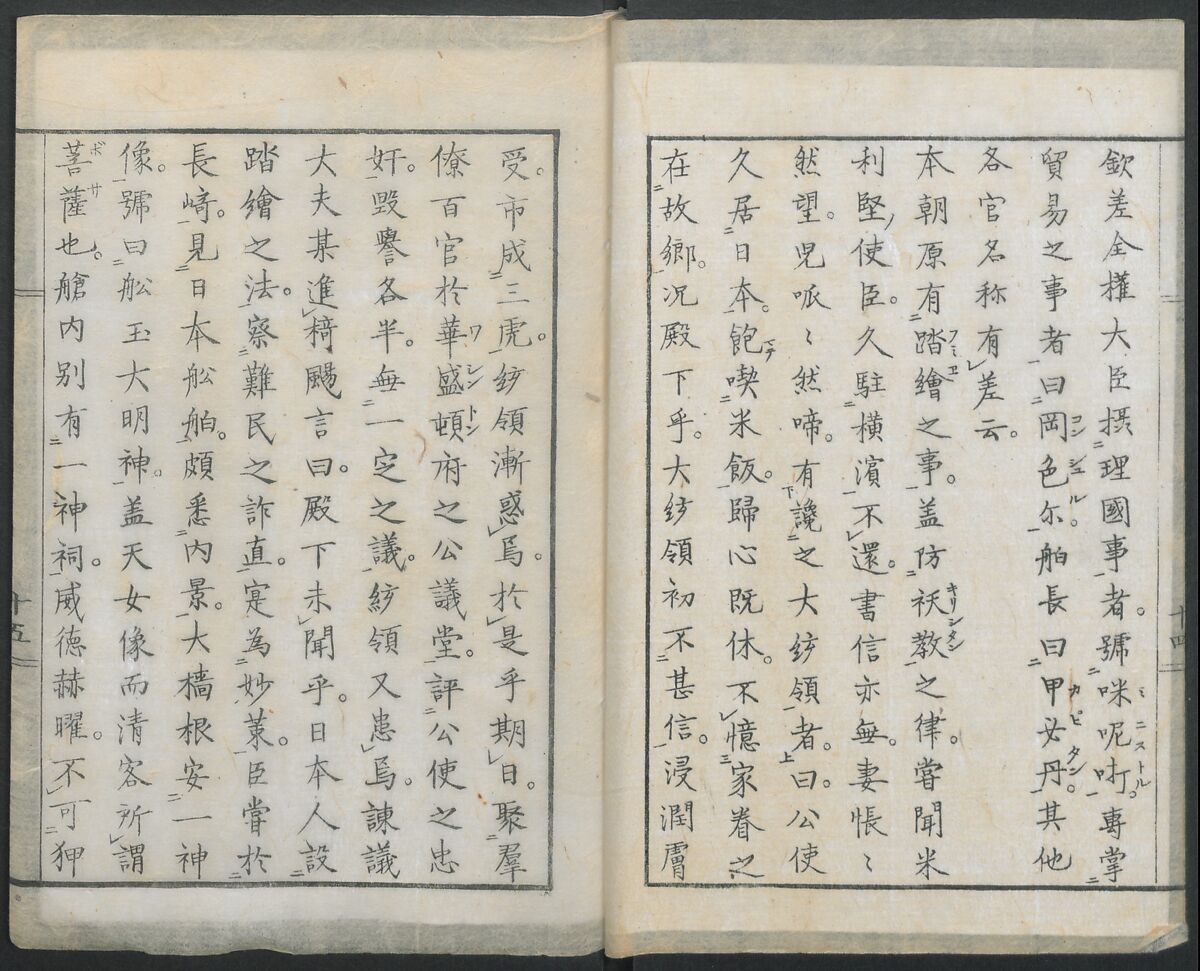 欽差全權大臣摂理國事者。號咪呢叮。專掌
貿易之事者曰岡色尓。舶長曰甲必丹。其他
各官名称有差云。
本朝原有踏繪之事。盖防祆教之律。甞聞米
利堅使臣。久駐横濱不還。書信亦無。妻悵〻
然望。児哌〻然啼。有讒之大綂領者。曰。公使
久居日本。飽喫米飯。歸心既休。不憶家眷之
在故郷。况殿下乎。大綂領初不甚信。浸潤膚
受。市成三虎。綂領漸惑焉。於是乎期日。聚羣
僚百官於華盛頓府之公議堂。評公使之忠
奸。毀譽各半。無一定之議。綂領又患焉。諌議
大夫某進楿颺言曰。殿下未聞乎。日本人設
踏繪之法。察難民之詐直。寔為妙策。臣甞於
長﨑。見日本舩舶。頗悉内景。大檣根安一神
像。號曰舩玉大明神。盖天女像而清客所謂
菩薩也。艙内別有一神祠。威德赫曜。不可狎
コンシュル
カピタン
ミニストル
フミヱ
キリシタン
ワシントン
ボサ
十四
十五